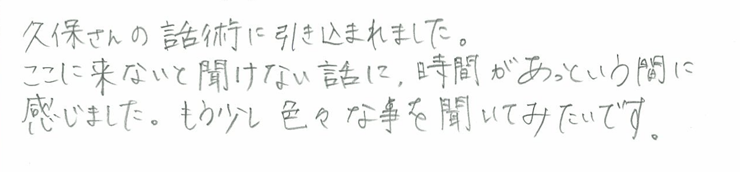 久保さんの話術に引き込まれました。
ここに来ないと聞けない話に、時間があっという間に
感じました。もう少し色々な事を聞いてみたいです。